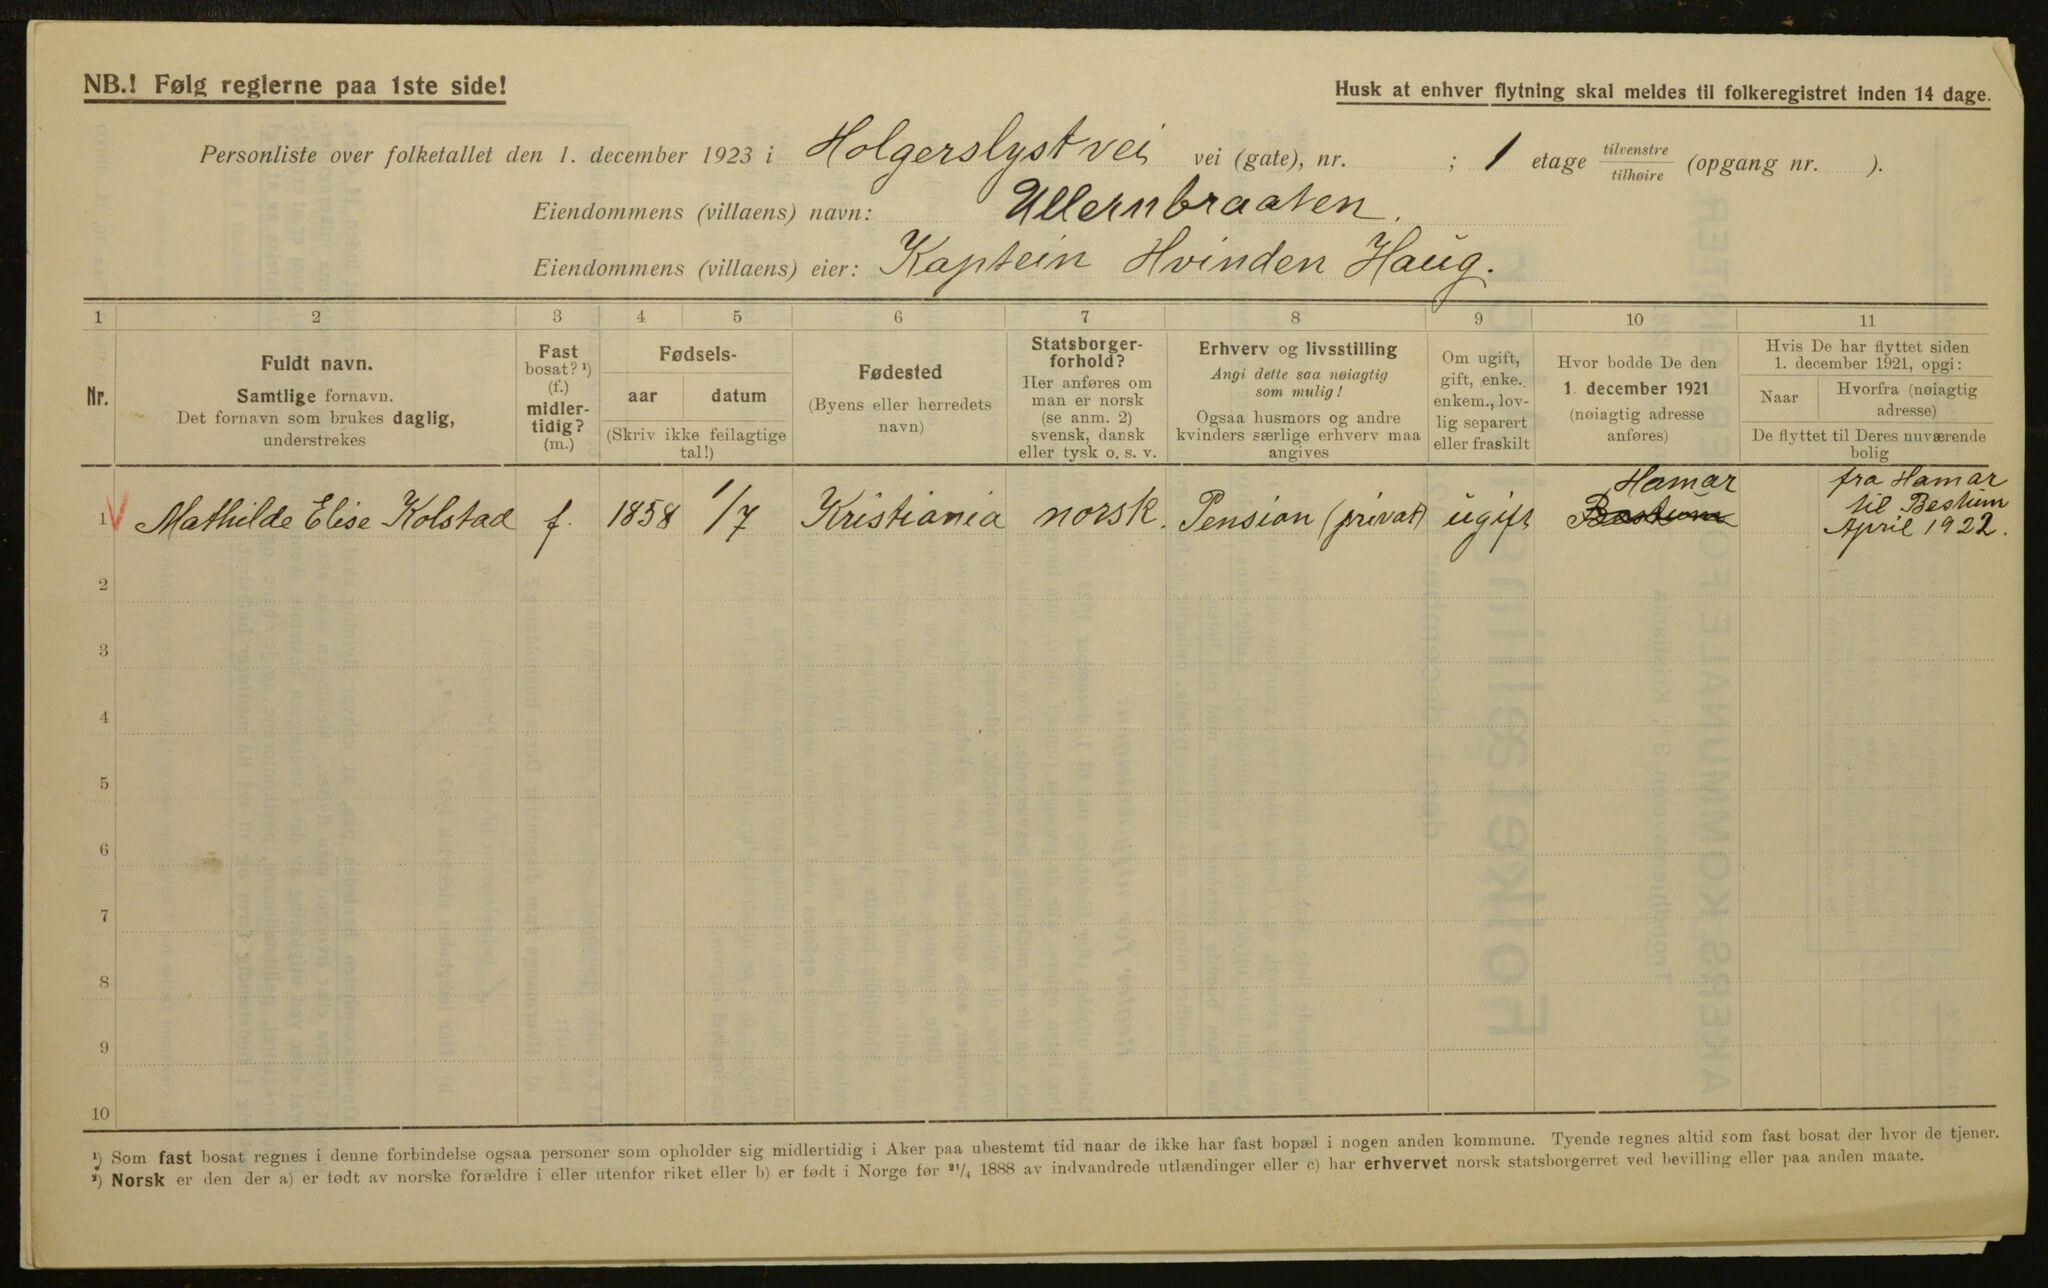 NB.! Følg reglerne paa 1ste side!
Husk at enhver flytning skal meldes til folkeregistret inden 14 dage.
Personliste over folketallet den 1. december 1923 i Holgerslystvei vei (gate), nr. ; 1 etage tilvenstre / tilhøire (opgang nr. ).
Eiendommens (villaens) navn: Ullernbraaten.
Eiendommens (villaens) eier: Kaptein Hvinden Haug.
1 2 3 4 5 6 7 8 9 10 11
Nr.
Fuldt navn.
Samtlige fornavn.
Det fornavn som brukes daglig,
understrekes
Fast
bosat? ¹)
(f.)
midler-
tidig?
(m.)
Fødsels-
aar datum
(Skriv ikke feilagtige
tal!)
Fødested
(Byens eller herredets
navn)
Statsborger-
forhold?
Her anføres om
man er norsk
(se anm. 2)
svensk, dansk
eller tysk o. s. v.
Erhverv og livsstilling
Angi dette saa nøiagtig
som mulig!
Ogsaa husmors og andre
kvinders særlige erhverv maa
angives
Om ugift,
gift, enke.
enkem., lov-
lig separert
eller fraskilt
Hvor bodde De den
1. december 1921
(nøiagtig adresse
anføres)
Hvis De har flyttet siden
1. december 1921, opgi:
Naar
Hvorfra (nøiagtig
adresse)
De flyttet til Deres nuværende
bolig
1 Mathilde Elise Kolstad f. 1858 1/7 Kristiania norsk. Pension (privat) ugift
Hamar
Bestum
fra Hamar
til Bestum
April 1922.
2
3
4
5
6
7
8
9
10
¹) Som fast bosat regnes i denne forbindelse ogsaa personer som opholder sig midlertidig i Aker paa ubestemt tid naar de ikke har fast bopæl i nogen anden kommune. Tyende regnes altid som fast bosat der hvor de tjener.
²) Norsk er den der a) er født av norske forældre i eller utenfor riket eller b) er født i Norge før 21/4 1888 av indvandrede utlændinger eller c) har erhvervet norsk statsborgerret ved bevilling eller paa anden maate.